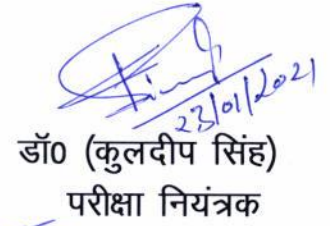 23/01/2021
डॉ0 (कुलदीप सिंह)
परीक्षा नियंत्रक